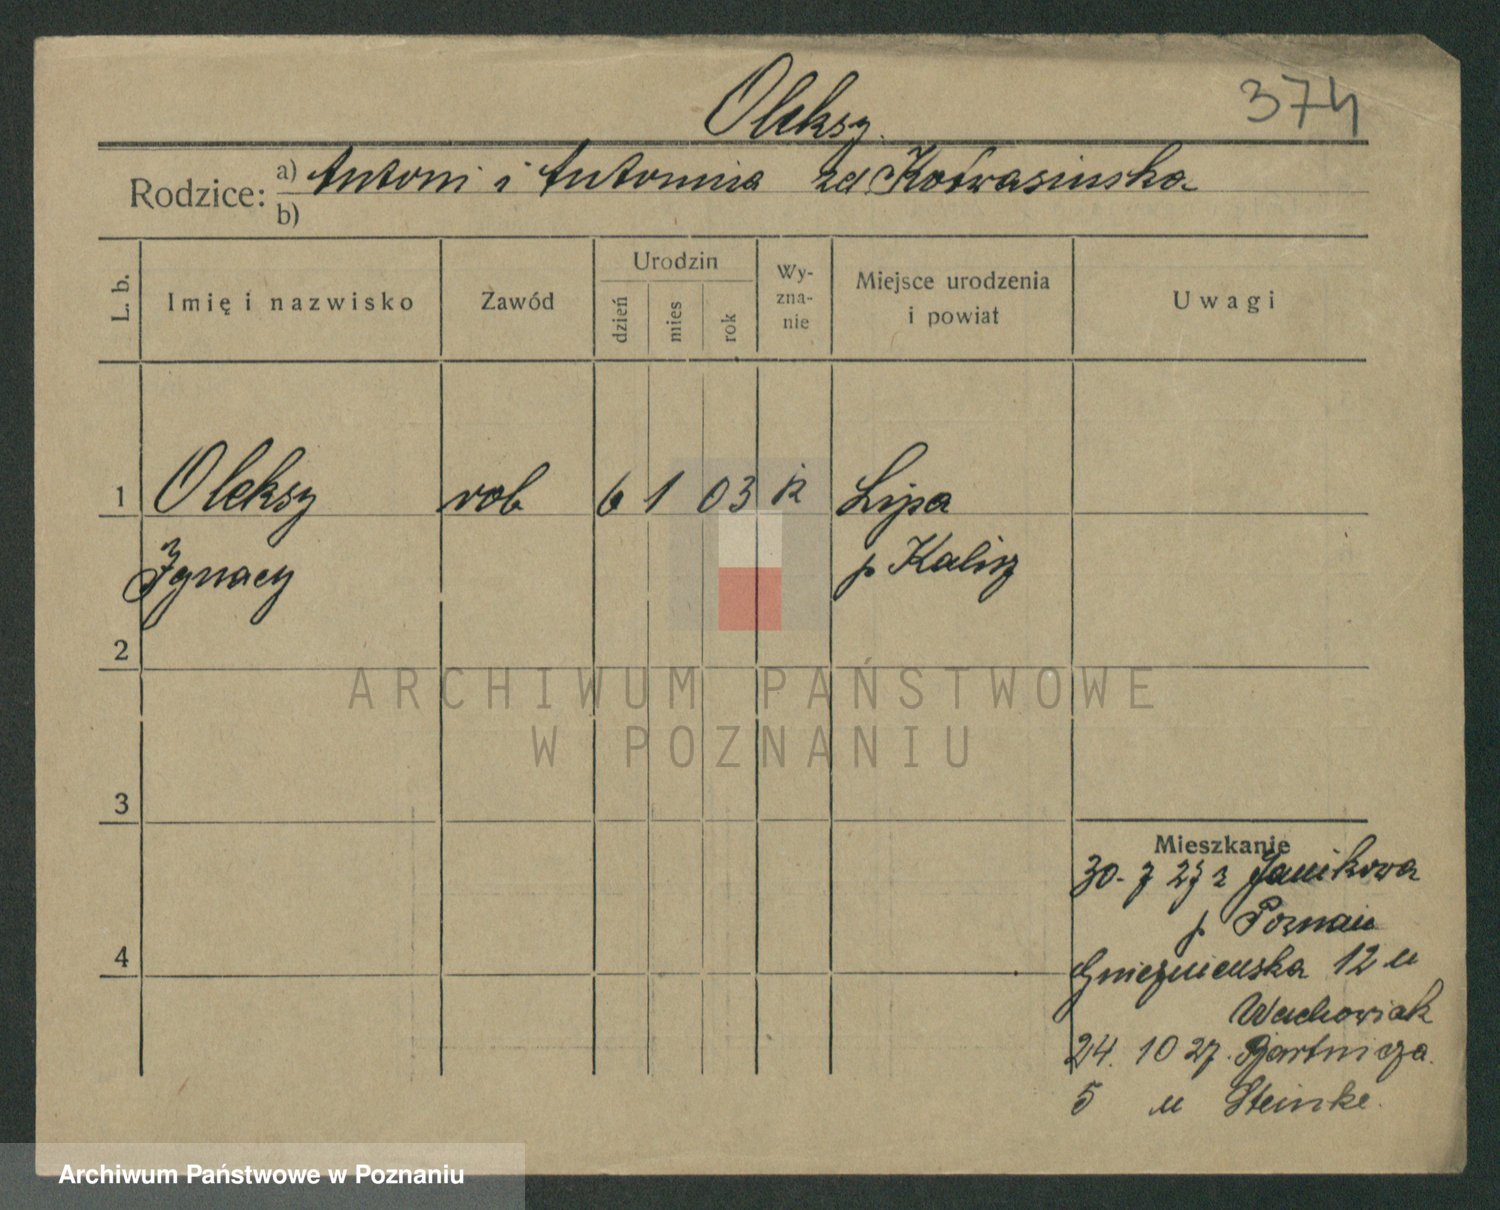 Oleksy.
374
Rodzice: a) Antoni i Antonina zd Kotwasinska
b)
L. b.
Imię i nazwisko
Zawód
Urodzin
dzień
mies
rok
Wy-
zna-
nie
Miejsce urodzenia
i powiat
Uwagi
1 Oleksy rob 6 1 03 k Lipa
Ignacy p Kalisz
2
ARCHIWUM PAŃSTWOWE
W POZNANIU
3
Mieszkanie
30. 7 27 z Janikowa
p Poznań
4
Gnieźnieńska 12 u
Wachowiak
24. 10 27. Bartnicza
5 u Steinke.
Archiwum Państwowe w Poznaniu